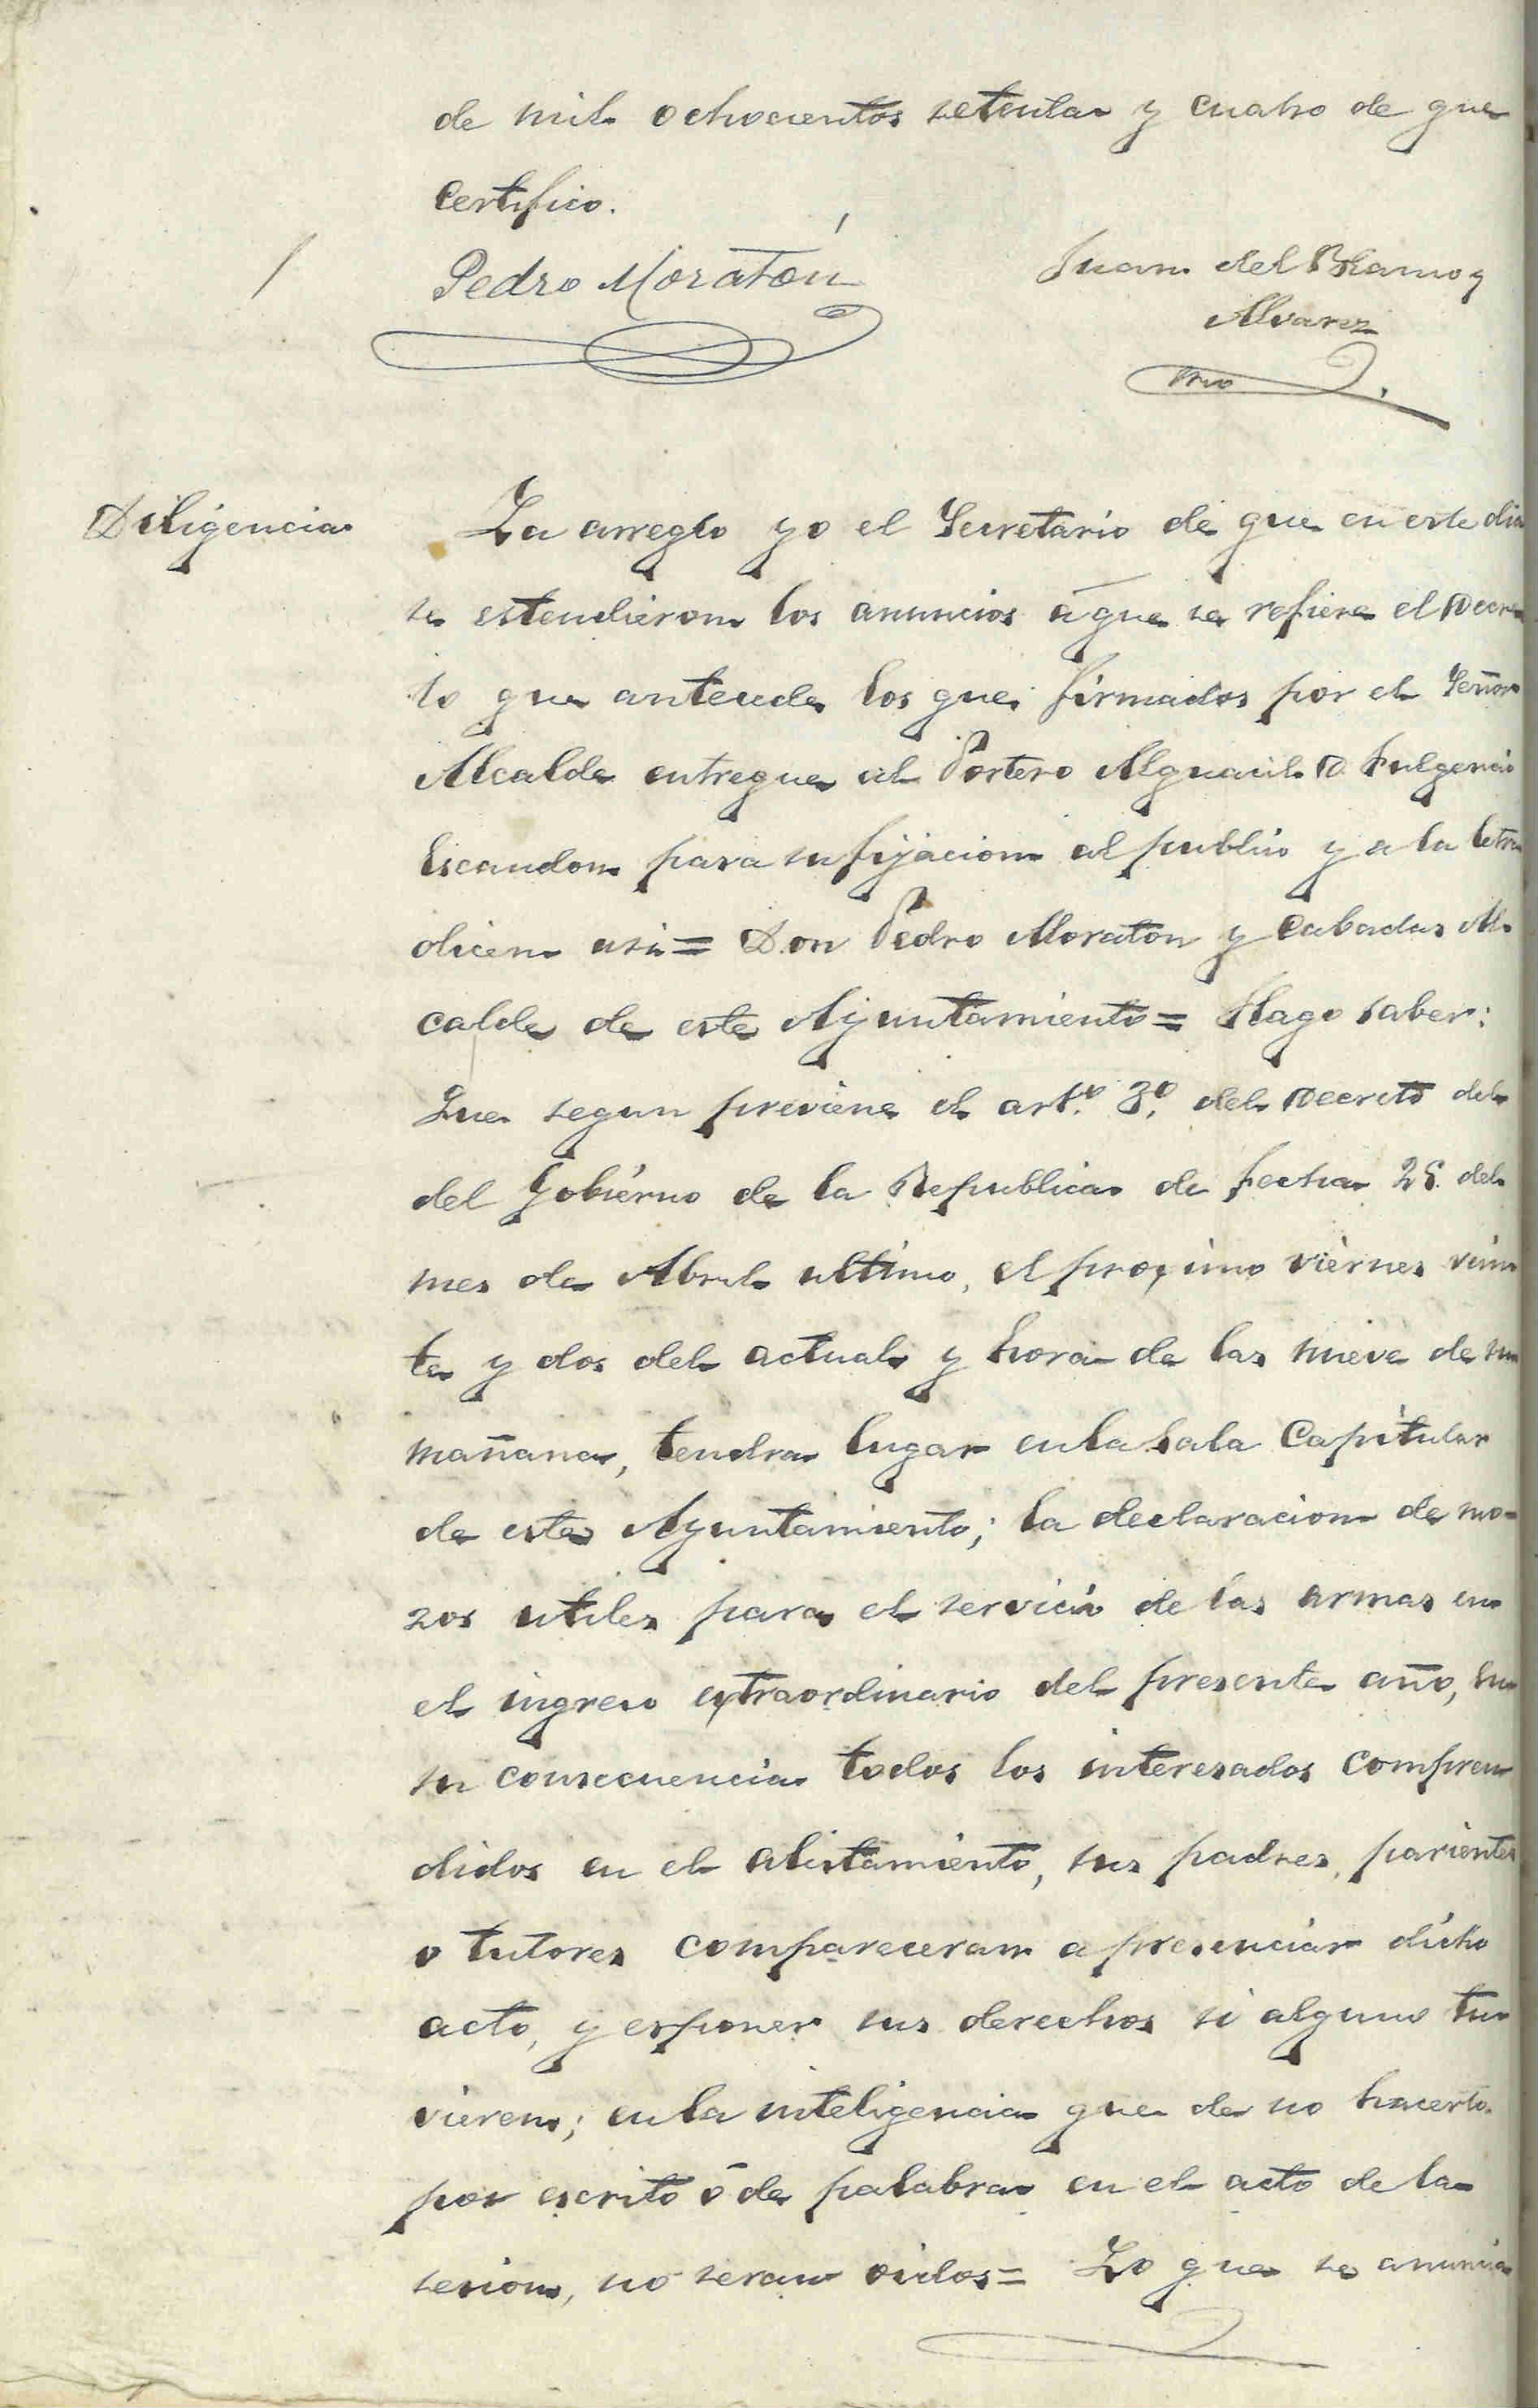 de mil ochocientos setenta y cuatro de que
certifico.
Pedro Moratón
Juan del Blanco y
Alvarez
Srio
Diligencia
La arreglo yo el Secretario de que en este dia
se estendieron los anuncios á que se refiere el Decre
to que antecede los que firmados por el Señor
Alcalde entregue al Portero Alguacil D. Fulgencio
Escandon para su fijacion al publico y a la letra
dicen asi = Don Pedro Moraton y Cabadas Al-
calde de este Ayuntamiento = Hago saber:
Que segun previene el art.º 3.º del Decreto del
del Gobierno de la Republica de fecha 25. del
mes de Abril ultimo, el proximo viernes vein
te y dos del actual y hora de las nueve de su
mañana, tendra lugar en la Sala Capitular
de este Ayuntamiento; la declaracion de mo-
zos utiles para el servicio de las armas en
el ingreso extraordinario del presente año, en
su consecuencia todos los interesados compren
didos en el alistamiento, sus padres, parientes
o tutores compareceran a presenciar dicho
acto, y esponer sus derechos si alguno tu
vieren; en la inteligencia que de no hacerlo
por escrito ó de palabra en el acto de la
sesion, no seran oidos = Lo que se anuncia